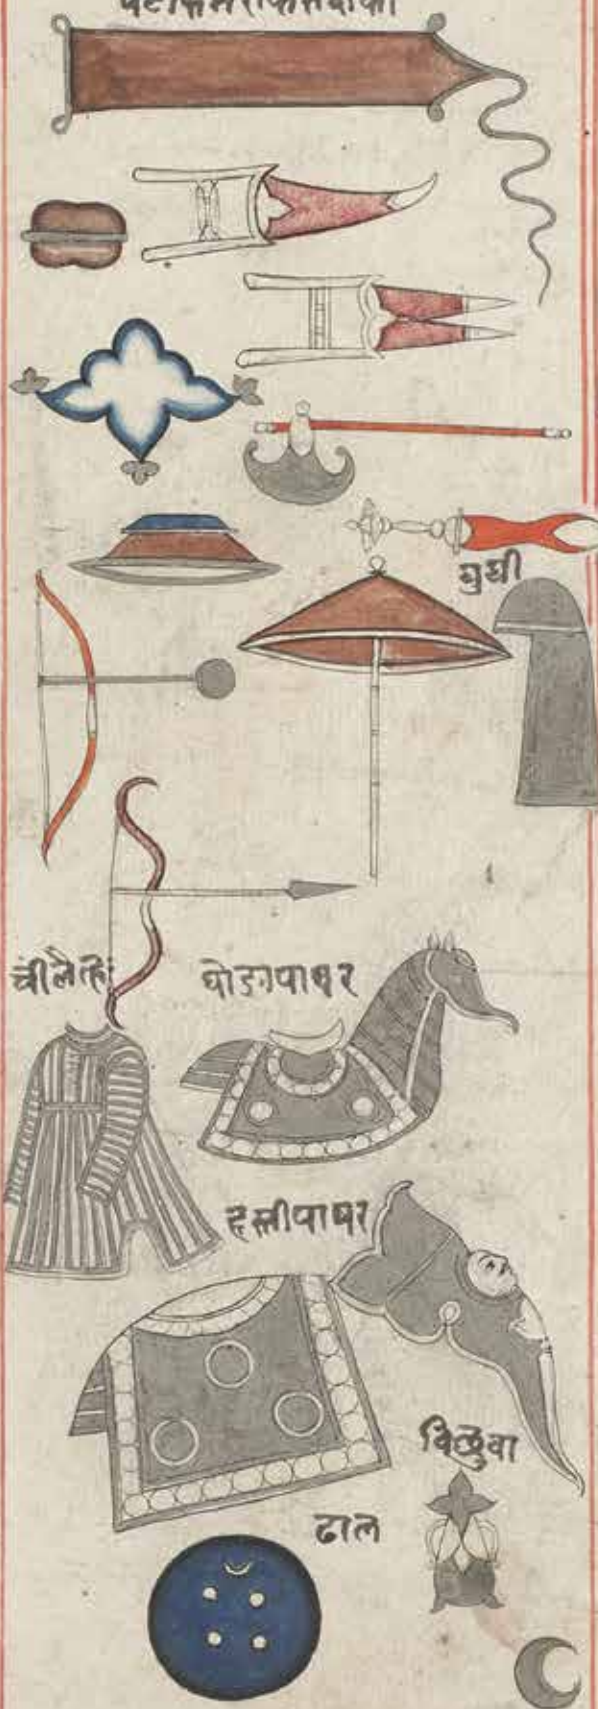 घुघी
चीलैतह
घोडापाषर
हस्तीपाषर
विछुवा
ढाल